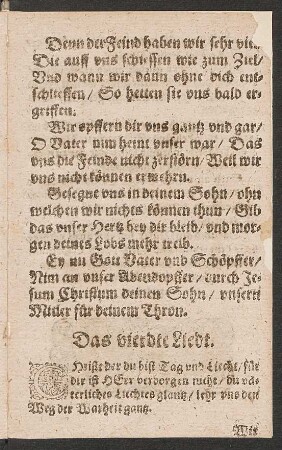 Denn der Feind haben wir sehr viel/
Die auff vns schiessen wie zum Ziel/
Vnd wann wir dann ohne dich ent-
schlieffen/ So hetten sie vns bald er-
griffen.
Wir opffern dir vns gantz vnd gar/
O Vater nim heint vnser war/ Das
vns die Feinde nicht zerstörn/ Weil wir
vns nicht können erwehrn.
Gesegne vns in deinem Sohn/ ohn
welchen wir nichts können thun/ Gib
das vnser Hertz bey dir bleib/ vnd mor-
gen deines Lobs mehr treib.
Ey nu Gott Vater vnd Schöpffer/
Nim an vnser Abendopffer/ durch Je-
sum Christum deinen Sohn/ vnsern
Mitler für deinem Thron.
Das vierdte Liedt.
CHriste der du bist Tag vnd Liecht/ für
dir ist HErr verborgen nicht/ du vä-
terliches Liechtes glantz/ lehr vns den
Weg der Warheit gantz.
Wir